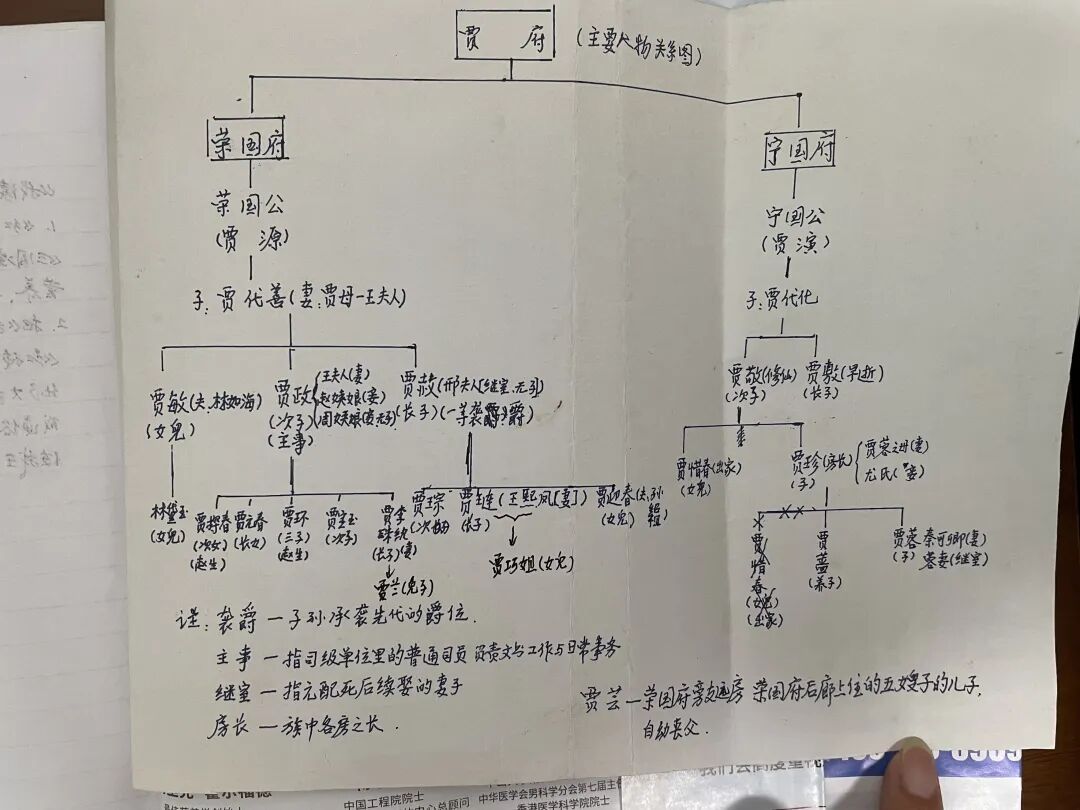 贾 府 (主要人物关系图)
荣国府
宁国府
荣国公
(贾 源)
宁国公
(贾 演)
子:贾代善(妻:贾母一王夫人)
子:贾代化
贾敏(夫.林如海)
(女儿)
贾政
(次子)
(主事)
王夫人(妻)
赵姨娘(妾)
周姨娘(妾,无子)
贾赦(邢夫人[继室,无子]
(长子)(一等袭爵)
贾敬(修仙)
(次子)
贾敷(早逝)
(长子)
林黛玉
(女儿)
贾探春
(次女)
(赵生)
贾元春
(长女)
贾环
(三子)
赵生)
贾宝玉
(次子)
贾李
珠纨
(长子)(妻)
贾兰(儿子)
贾琮
贾琏(王熙凤[妻])
(长子)
贾巧姐(女儿)
贾迎春(夫.孙
(女儿)
贾惜春(出家)
(女儿)
贾珍(房长)
(子)
贾蓉之母(妻)
尤氏(妻)
贾惜春
(女儿)
(出家)
贾
蔷
(养子)
贾蓉 秦可卿(妻)
(子) 蓉妻(继室)
注:袭爵一子孙承袭先代的爵位.
主事一指司级单位里的普通司员 负责文书工作与日常事务
继室一指元配死后续娶的妻子
房长一族中各房之长.
贾芸一荣国府旁支远房 荣国府后廊上住的五嫂子的儿子,
自幼丧父.
我们会高度重视
中国工程院院士
中心总顾问
中华医学会男科学分会第七届主任
香港医学科学院院士